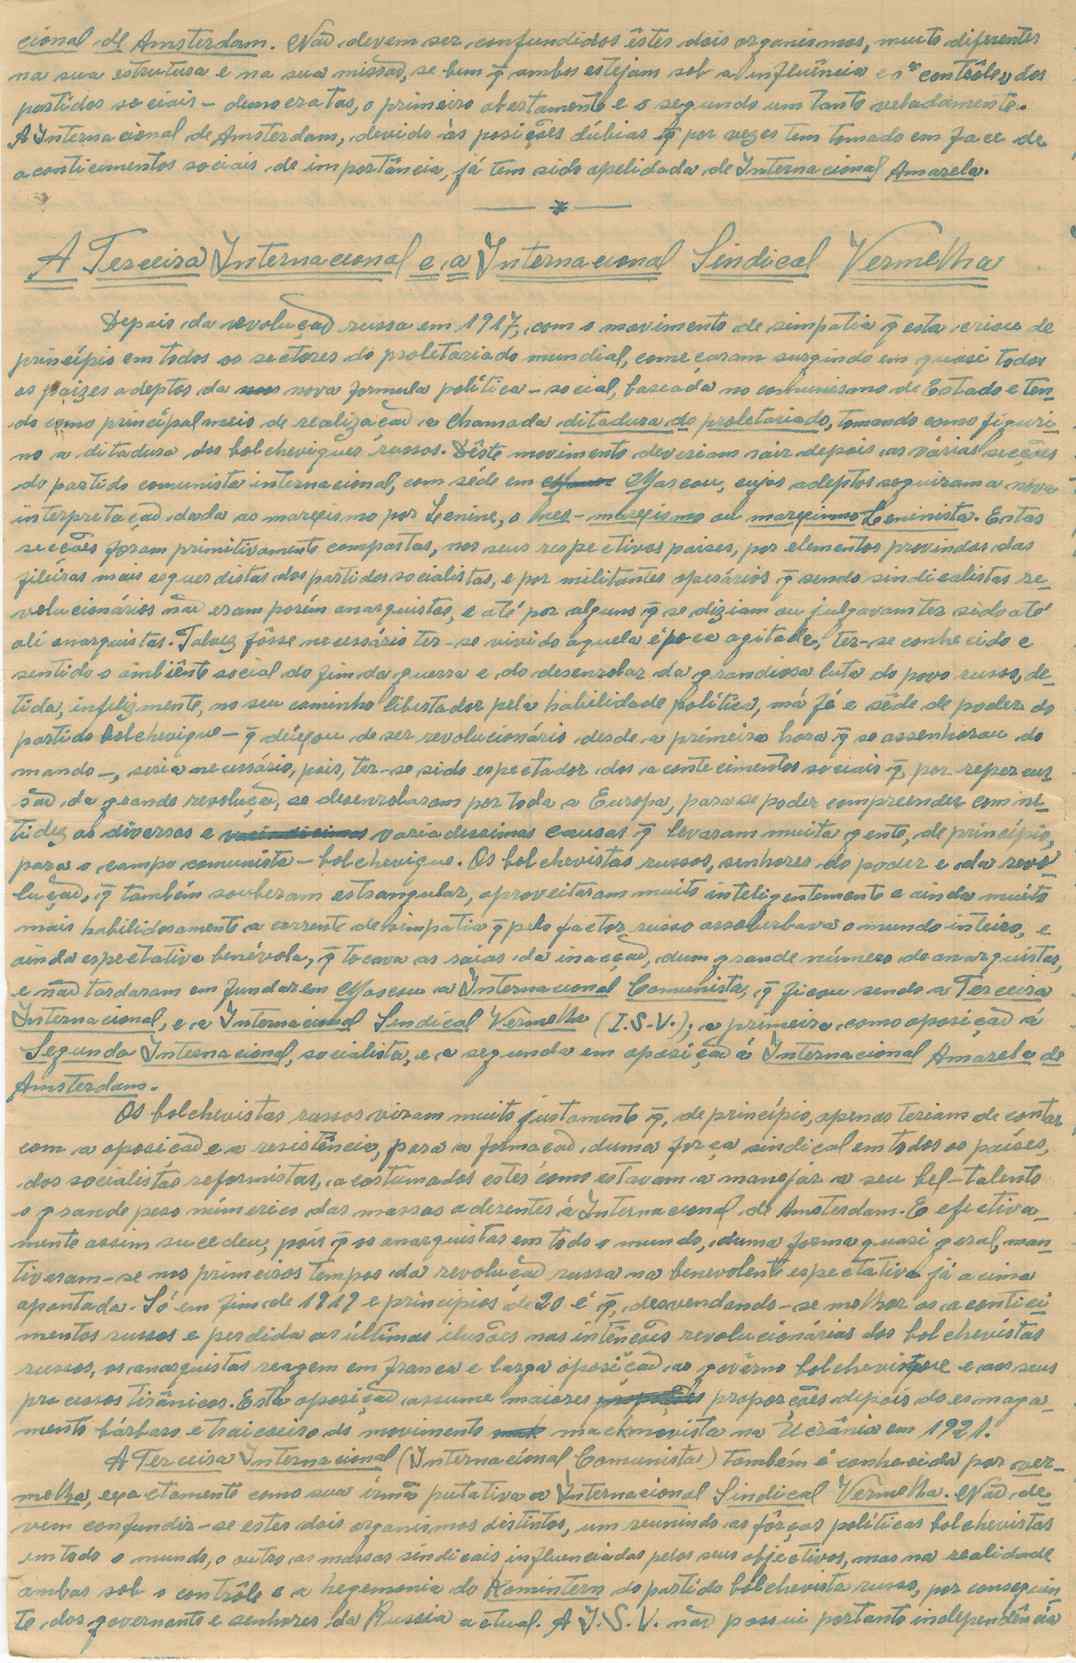 cional de Amsterdam. Não devem ser confundidos êstes dois organismos, muito diferentes
na sua estrutura e na sua missão, se bem q̃ ambos estejam sob a influência e o contrôle dos
partidos sociais-democratas, o primeiro abertamente e o segundo um tanto veladamente.
A Internacional de Amsterdam, devido às posições dúbias q̃ por vezes tem tomado em face de
aconticimentos sociais de importância, já tem sido apelidada de Internacional Amarela.
A Terceira Internacional e a Internacional Sindical Vermelha
Depois da revolução russa em 1917, com o movimento de simpatia q̃ esta criou de
princípio em todos os sectores do proletariado mundial, começaram surgindo em quasi todos
os paizes adeptos da nova formula política-social, baseada no comunismo de Estado e ten-
do como principal meio de realização a chamada ditadura do proletariado, tomando como figuri-
no a ditadura dos bolcheviques russos. Dêste movimento deveriam sair depois as várias secções
do partido comunista internacional, com séde em Moscou, cujos adeptos seguiram a nova
interpretação dada ao marxismo por Lenine, o neo-marxismo ou marxismo Leninista. Estas
secções foram primitivamente compostas, nos seus respectivos paises, por elementos provindos das
fileiras mais esquerdistas dos partidos socialistas, e por militantes operários q̃ sendo sindicalistas re-
volucionários não eram porém anarquistas, e até por alguns q̃ se diziam ou julgavam ter sido até
ali anarquistas. Talvez fôsse necessário ter-se vivido aquela época agitada, ter-se conhecido e
sentido o ambiênte social do fim da guerra e do desenrolar da grandiosa luta do povo russo, de-
tida, infelizmente, no seu caminho libertador pela habilidade política, má fé e sêde de poder do
partido bolchevique - q̃ deixou de ser revolucionário desde a primeira hora q̃ se assenhorou do
mando -, seria necessário, pois, ter-se sido espectador dos acontecimentos sociais q̃, por repercus-
são da grande revolução, se desenrolaram por toda a Europa, para se poder compreender com ni-
tidez as diversas e variadíssimas causas q̃ levaram muita gente, de princípio,
para o campo comunista-bolchevique. Os bolchevistas russos, senhores do poder e da revo-
lução, q̃ também souberam estrangular, aproveitaram muito inteligentemente e ainda muito
mais habilidosamente a corrente de simpatia q̃ pelo factor russo assoberbava o mundo inteiro, e
ainda espectativa benévola, q̃ tocava as raias da inacção, dum grande número de anarquistas,
e não tardaram em fundar em Moscou a Internacional Comunista, q̃ ficou sendo a Terceira
Internacional, e a Internacional Sindical Vermelha (I.S.V.); a primeira como oposição á
Segunda Internacional, socialista, e a segunda em oposição á Internacional Amarela de
Amsterdam.
Os bolchevistas russos viram muito justamente q̃, de princípio, apenas teriam de contar
com a oposição e a resistência, para a formação duma força sindical em todos os países,
dos socialistas reformistas, acostumados estes como estavam a manejar a seu bel-talento
o grande peso númerico das massas aderentes á Internacional de Amsterdam. E efectiva-
mente assim sucedeu, pois q̃ os anarquistas em todo o mundo, duma forma quasi geral, man-
tiveram-se nos primeiros tempos da revolução russa na benevolente espectativa já acima
apontada. Só em fim de 1919 e principios de 20 é q̃, desvendando-se melhor os acontici-
mentos russos e perdida as últimas ilusões nas intenções revolucionárias dos bolchevistas
russos, os anarquistas reagem em franca e larga oposição ao govêrno bolchevique e aos seus
processos tirânicos. Esta oposição assume maiores proporções depois do esmaga-
mento bárbaro e traiçoeiro do movimento mackmovista na Ucrânia em 1921.
A Terceira Internacional (Internacional Comunista) também é conhecida por ver-
melha, exactamente como sua irmã putativa a Internacional Sindical Vermelha. Não de-
vem confundir-se estes dois organismos distintos, um reunindo as fôrças políticas bolchevistas
em todo o mundo, o outro as massas sindicais influenciadas pelos seus objectivos, mas na realidade
ambas sob o contrôle e a hegemonia do Komintern do partido bolchevista russo, por conseguin-
te dos governante e senhores da Russia actual. A I.S.V. não possui portanto independência